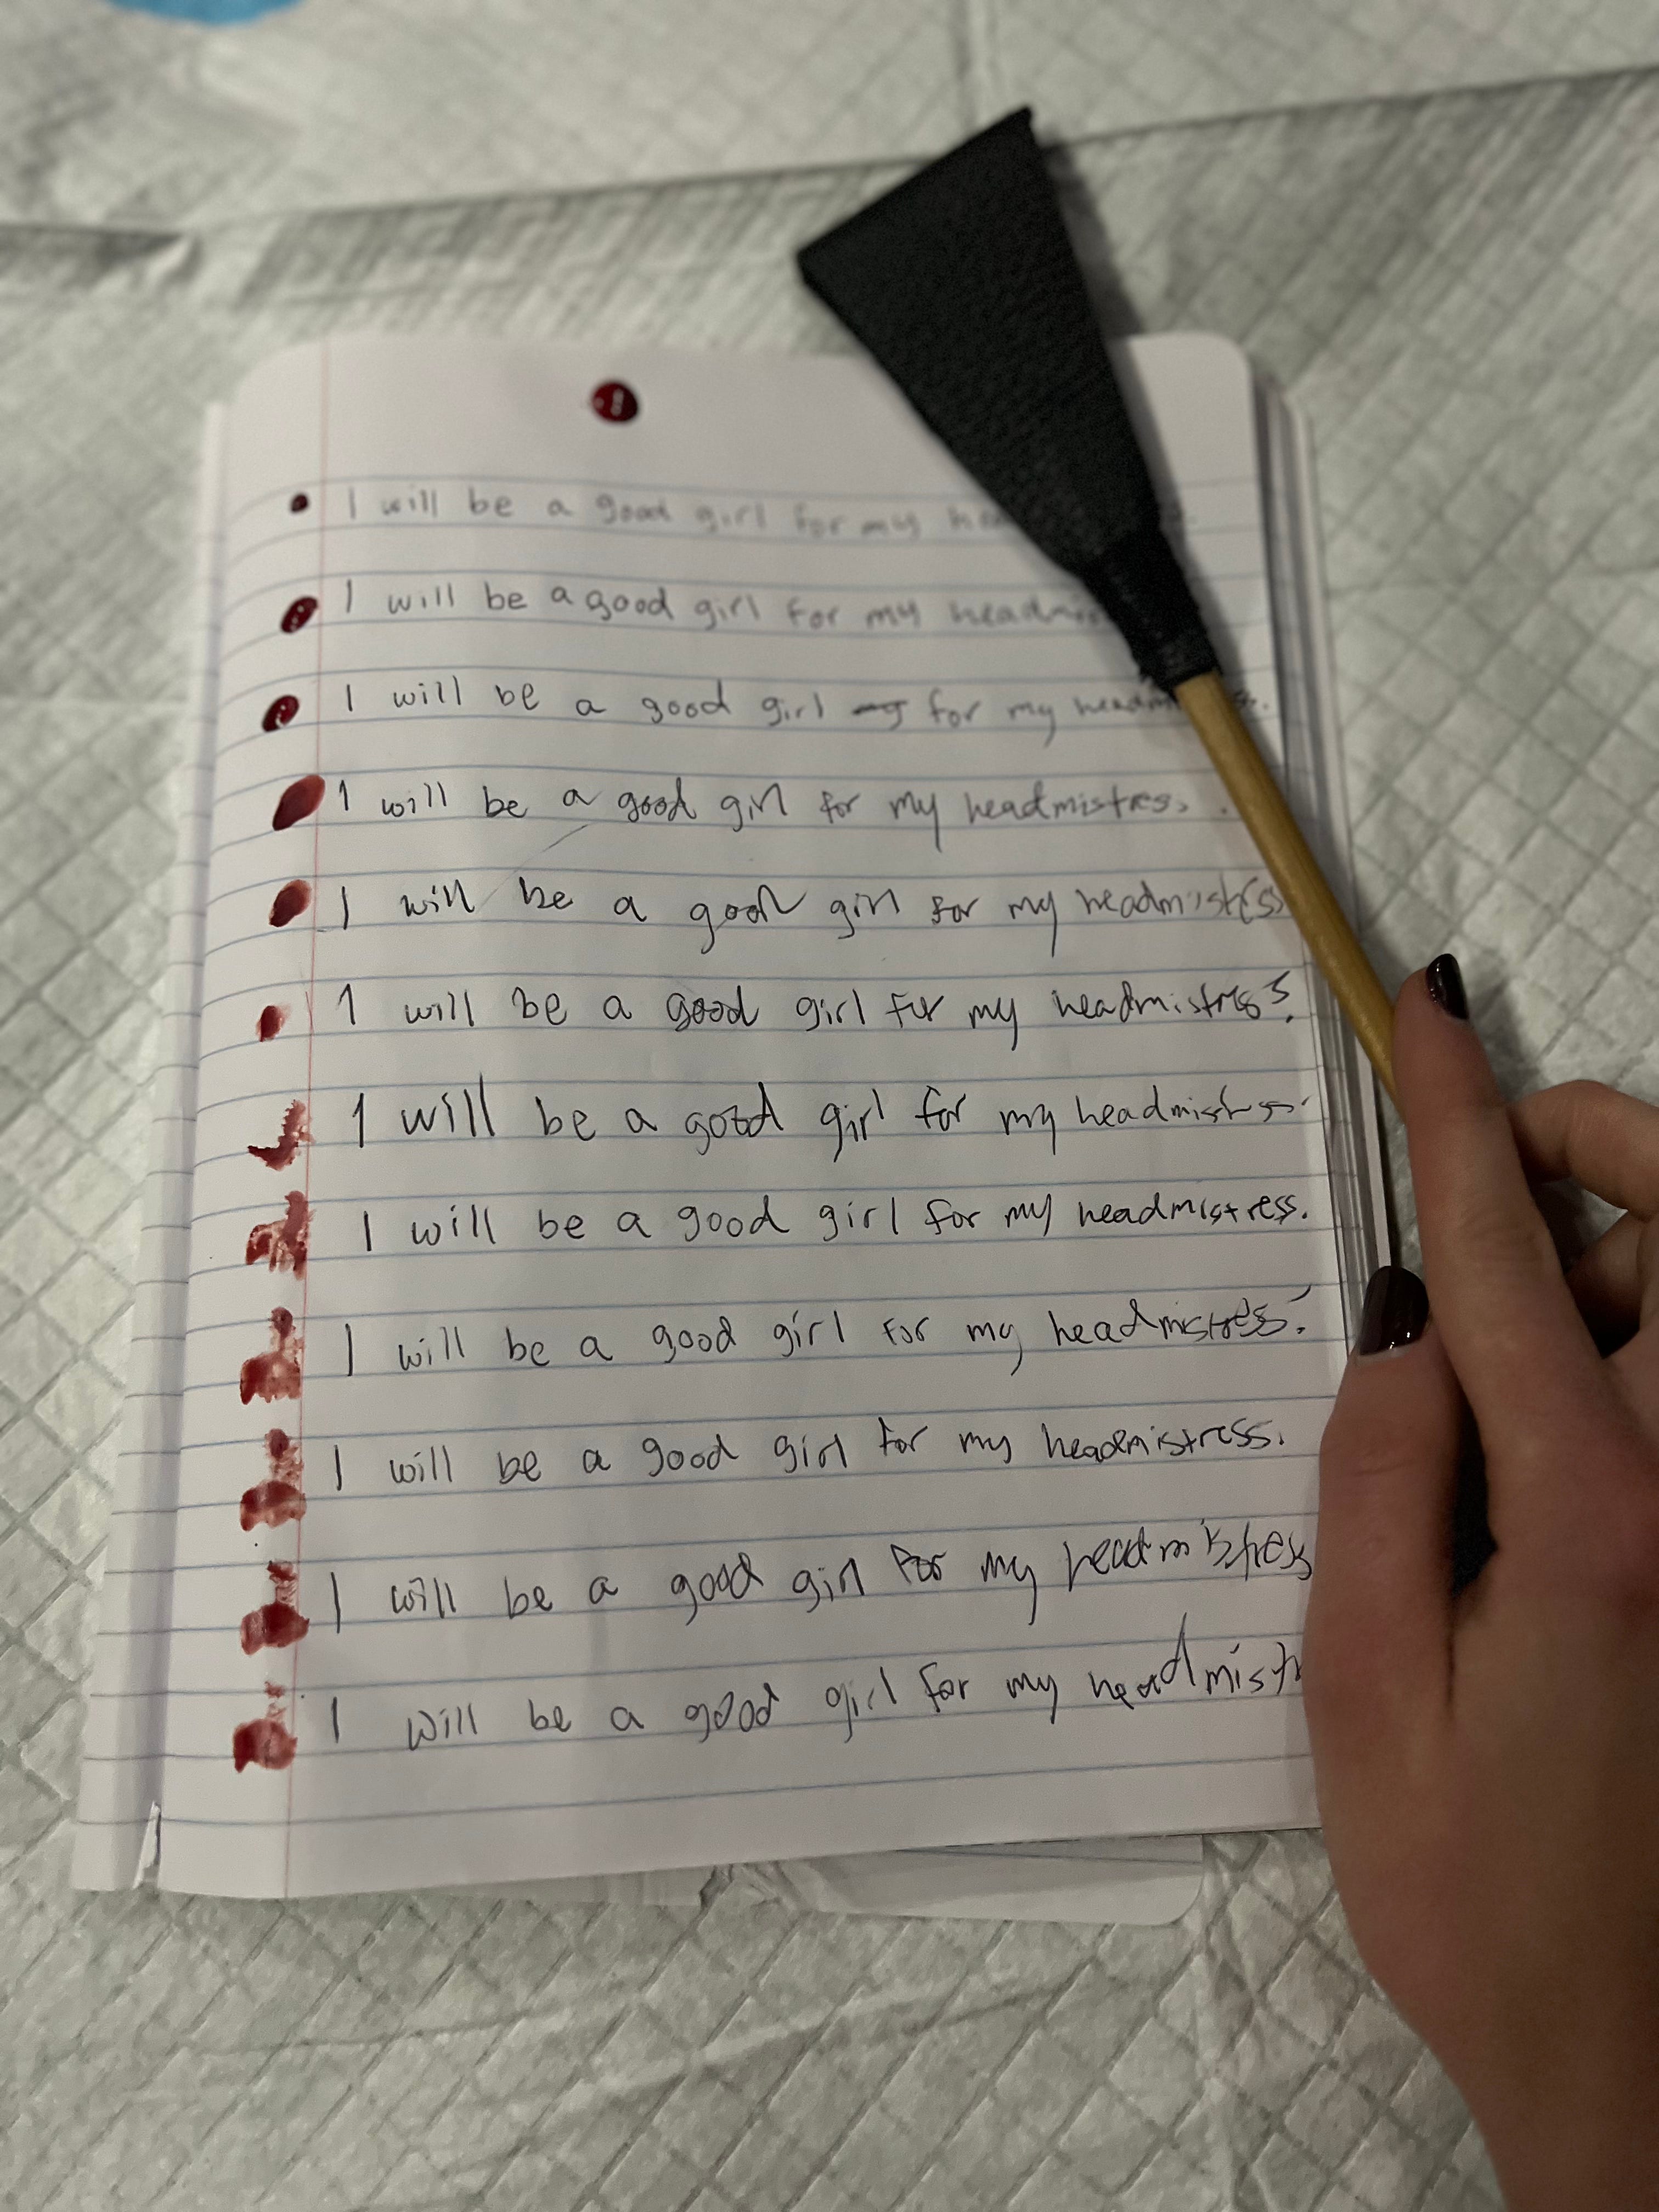 I will be a good girl for my
I will be a good girl for my
I will be a good girl for my
I will be a good girl for my headmistres.
I will be a good girl for my headmistress
I will be a good girl for my headmistress.
I will be a good girl for my headmistress.
I will be a good girl for my headmistress.
I will be a good girl for my headmistress.
I will be a good girl for my headmistress.
I will be a good girl for my headmistress
I will be a good girl for my